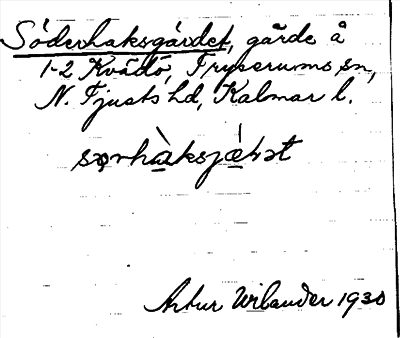 Söderhaksgärdet, gärde å
1-2 Kvädö, Tryserums sn,
N. Tjusts hd, Kalmar l.
Artur Wilander 1930